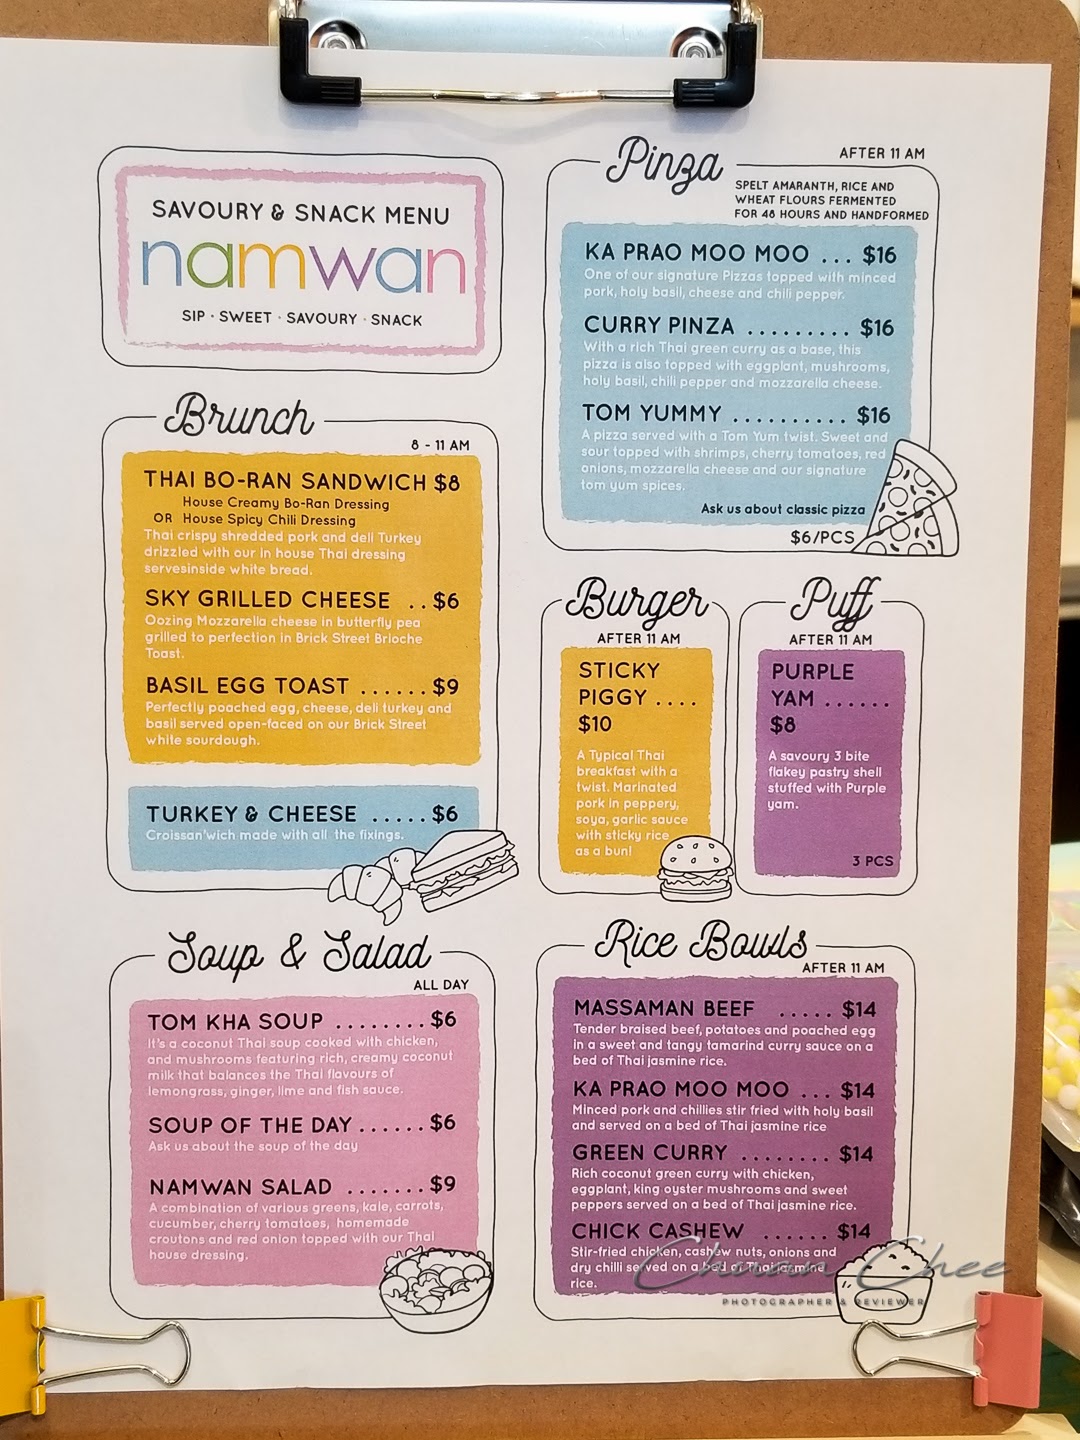 SAVOURY & SNACK MENU
namwan
SIP · SWEET · SAVOURY · SNACK
Brunch
8 - 11 AM
THAI BO-RAN SANDWICH $8
House Creamy Bo-Ran Dressing
OR House Spicy Chili Dressing
Thai crispy shredded pork and deli Turkey
drizzled with our in house Thai dressing
servesinside white bread.
SKY GRILLED CHEESE .. $6
Oozing Mozzarella cheese in butterfly pea
grilled to perfection in Brick Street Brioche
Toast.
BASIL EGG TOAST ...... $9
Perfectly poached egg, cheese, deli turkey and
basil served open-faced on our Brick Street
white sourdough.
TURKEY & CHEESE ..... $6
Croissan'wich made with all the fixings.
Soup & Salad
ALL DAY
TOM KHA SOUP ........ $6
It's a coconut Thai soup cooked with chicken,
and mushrooms featuring rich, creamy coconut
milk that balances the Thai flavours of
lemongrass, ginger, lime and fish sauce.
SOUP OF THE DAY ...... $6
Ask us about the soup of the day
NAMWAN SALAD ....... $9
A combination of various greens, kale, carrots,
cucumber, cherry tomatoes, homemade
croutons and red onion topped with our Thai
house dressing.
Pinza
AFTER 11 AM
SPELT AMARANTH, RICE AND
WHEAT FLOURS FERMENTED
FOR 48 HOURS AND HANDFORMED
KA PRAO MOO MOO ... $16
One of our signature Pizzas topped with minced
pork, holy basil, cheese and chili pepper.
CURRY PINZA ......... $16
With a rich Thai green curry as a base, this
pizza is also topped with eggplant, mushrooms,
holy basil, chili pepper and mozzarella cheese.
TOM YUMMY .......... $16
A pizza served with a Tom Yum twist. Sweet and
sour topped with shrimps, cherry tomatoes, red
onions, mozzarella cheese and our signature
tom yum spices.
Ask us about classic pizza
$6/PCS
Burger
AFTER 11 AM
STICKY
PIGGY ....
$10
A Typical Thai
breakfast with a
twist. Marinated
pork in peppery,
soya, garlic sauce
with sticky rice
as a bun!
Puff
AFTER 11 AM
PURPLE
YAM ......
$8
A savoury 3 bite
flakey pastry shell
stuffed with Purple
yam.
3 PCS
Rice Bowls
AFTER 11 AM
MASSAMAN BEEF ..... $14
Tender braised beef, potatoes and poached egg
in a sweet and tangy tamarind curry sauce on a
bed of Thai jasmine rice.
KA PRAO MOO MOO ... $14
Minced pork and chillies stir fried with holy basil
and served on a bed of Thai jasmine rice
GREEN CURRY ........ $14
Rich coconut green curry with chicken,
eggplant, king oyster mushrooms and sweet
peppers served on a bed of Thai jasmine rice.
CHICK CASHEW ...... $14
Stir-fried chicken, cashew nuts, onions and
dry chilli served on a bed of Thai jasmine
rice.
Chuan Chee
PHOTOGRAPHER & REVIEWER